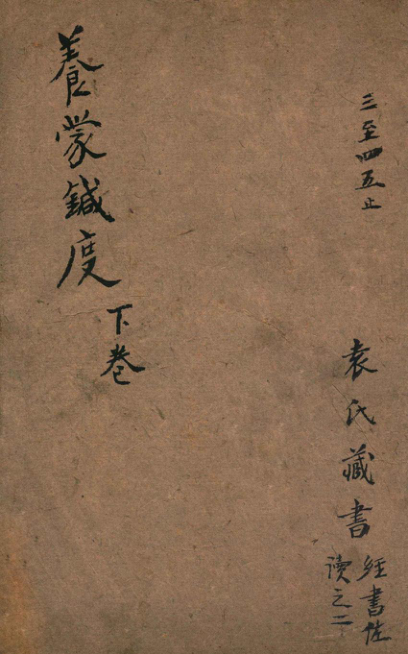 三至四五止
袁氏藏書
經書佐
讀之二
養蒙鍼度
下卷